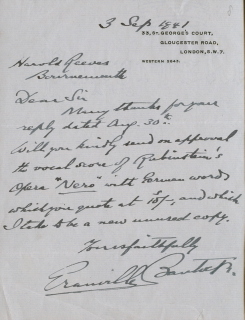 3 Sep 1941
33, St. GEORGE'S COURT,
GLOUCESTER ROAD,
LONDON, S.W.7.
WESTERN 2947.
Harold Reeves
Bournemouth
Dear Sir
Many thanks for your
reply dated Aug. 30th.
Will you kindly send on approval
the vocal score of Rubinstein's
Opera "Nero" with German words
which you quote at 15/-, and which
I take to be a new unused copy.
Yours faithfully
Granville Bantock.